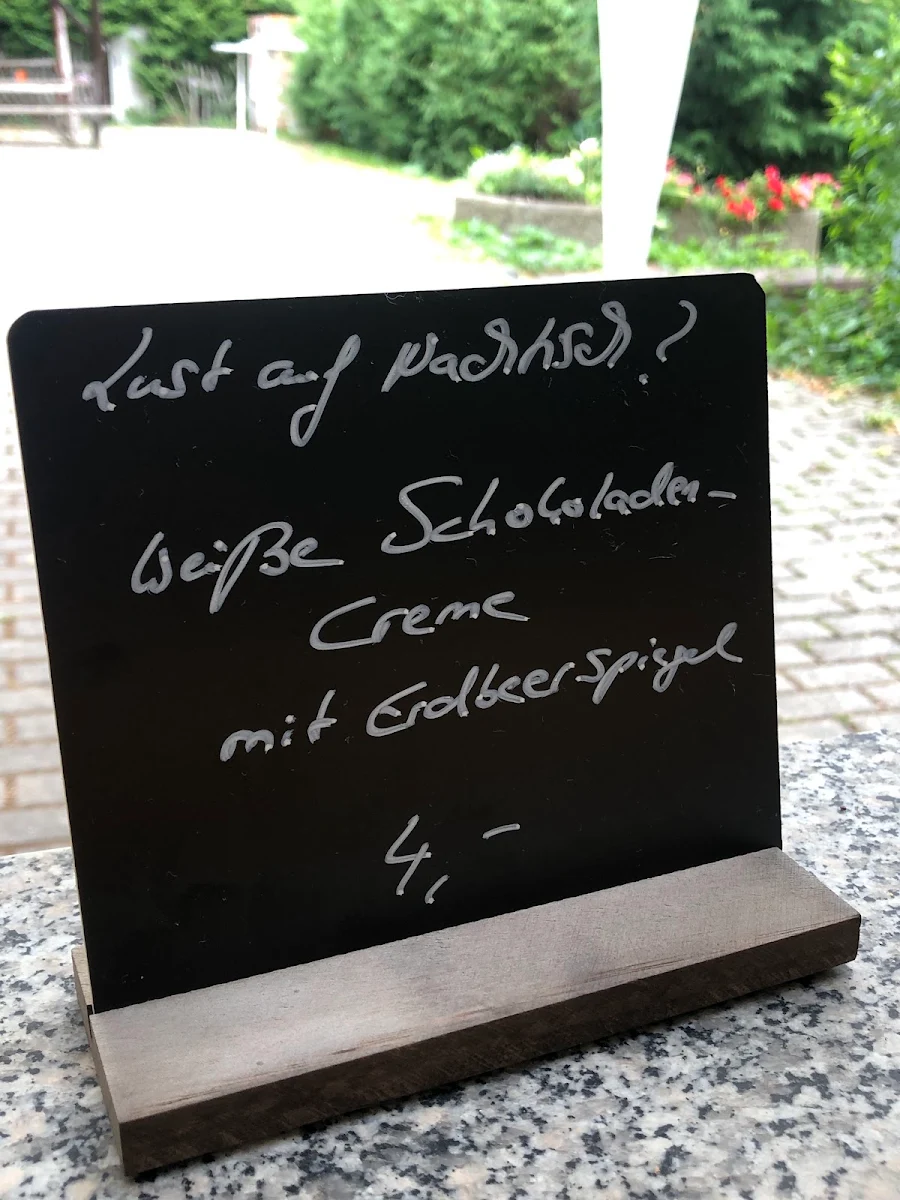 Lust auf Nachtisch?
weiße Schokoladen-
Creme
mit Erdbeerspiegel
4,-